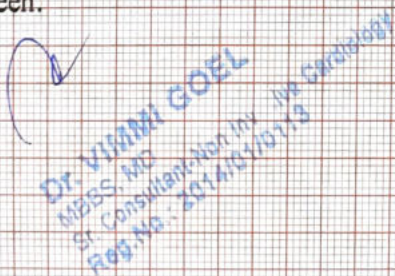 een.
Dr. VIMMI GOEL
MBBS, MD
Sr. Consultant-Non Inv ive Cardiology
Reg.No.: 2014/01/0113